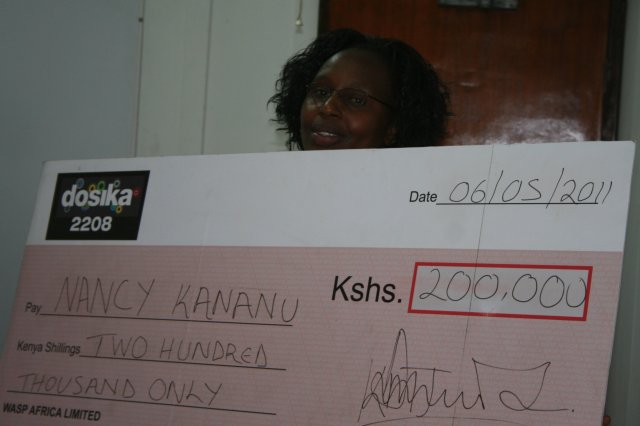 dosika
2208
Date 06/05/2011
Pay NANCY KANANU
Kshs. 200,000
Kenya Shillings TWO HUNDRED
THOUSAND ONLY
WASP AFRICA LIMITED